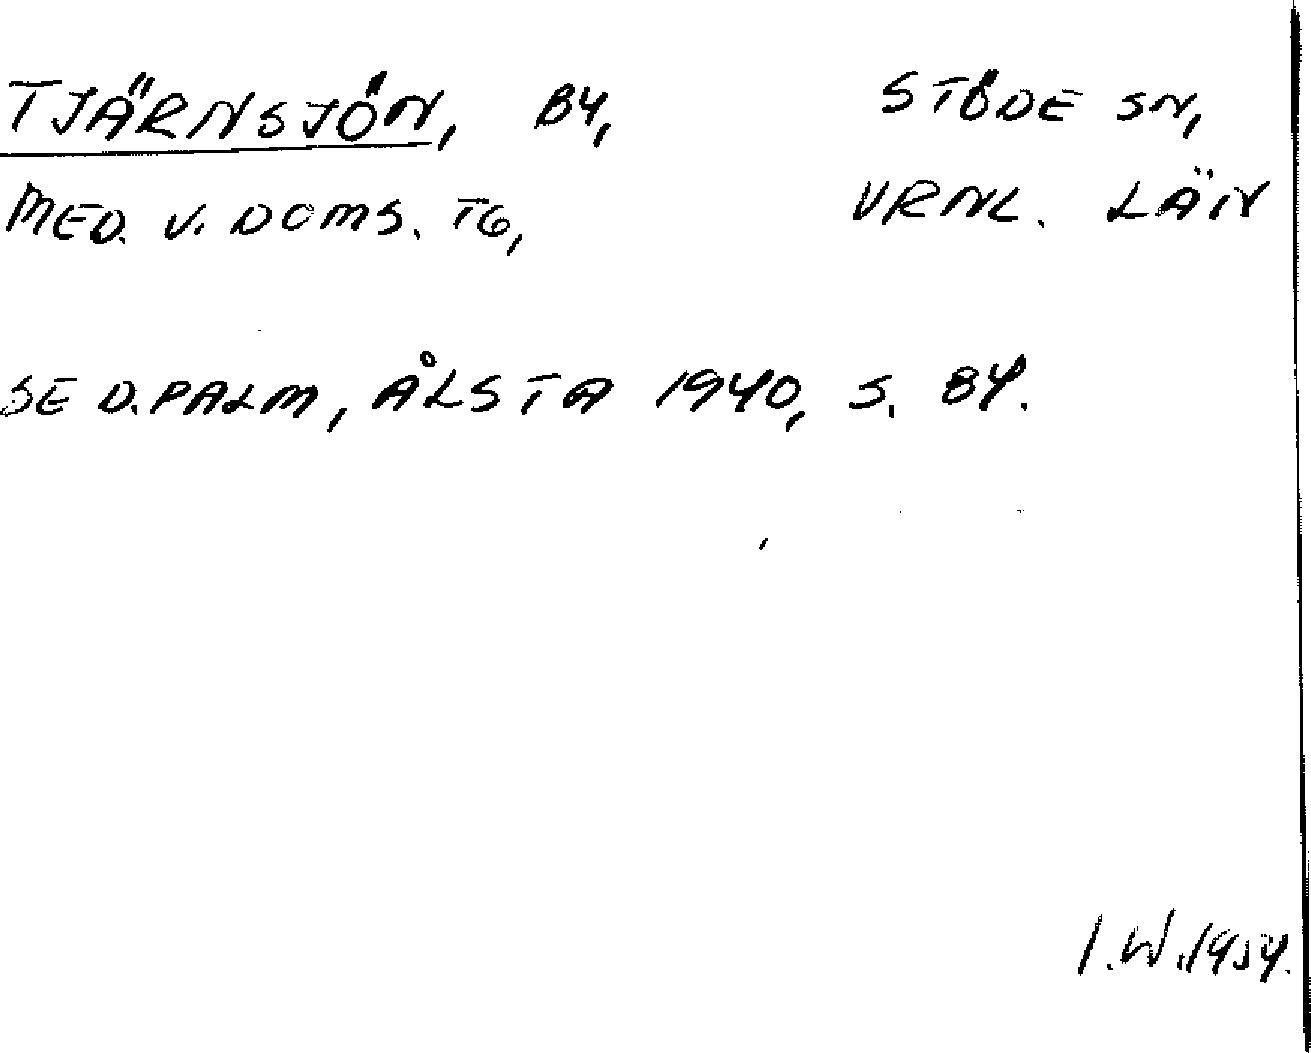 TJÄRNSJÖN, BY, STÖDE SN,
MED. V. DOMS. TG, VRNL. LÄN
SE D. PALM, ÅLSTA 1940, S. 84.
I.W. 1954.